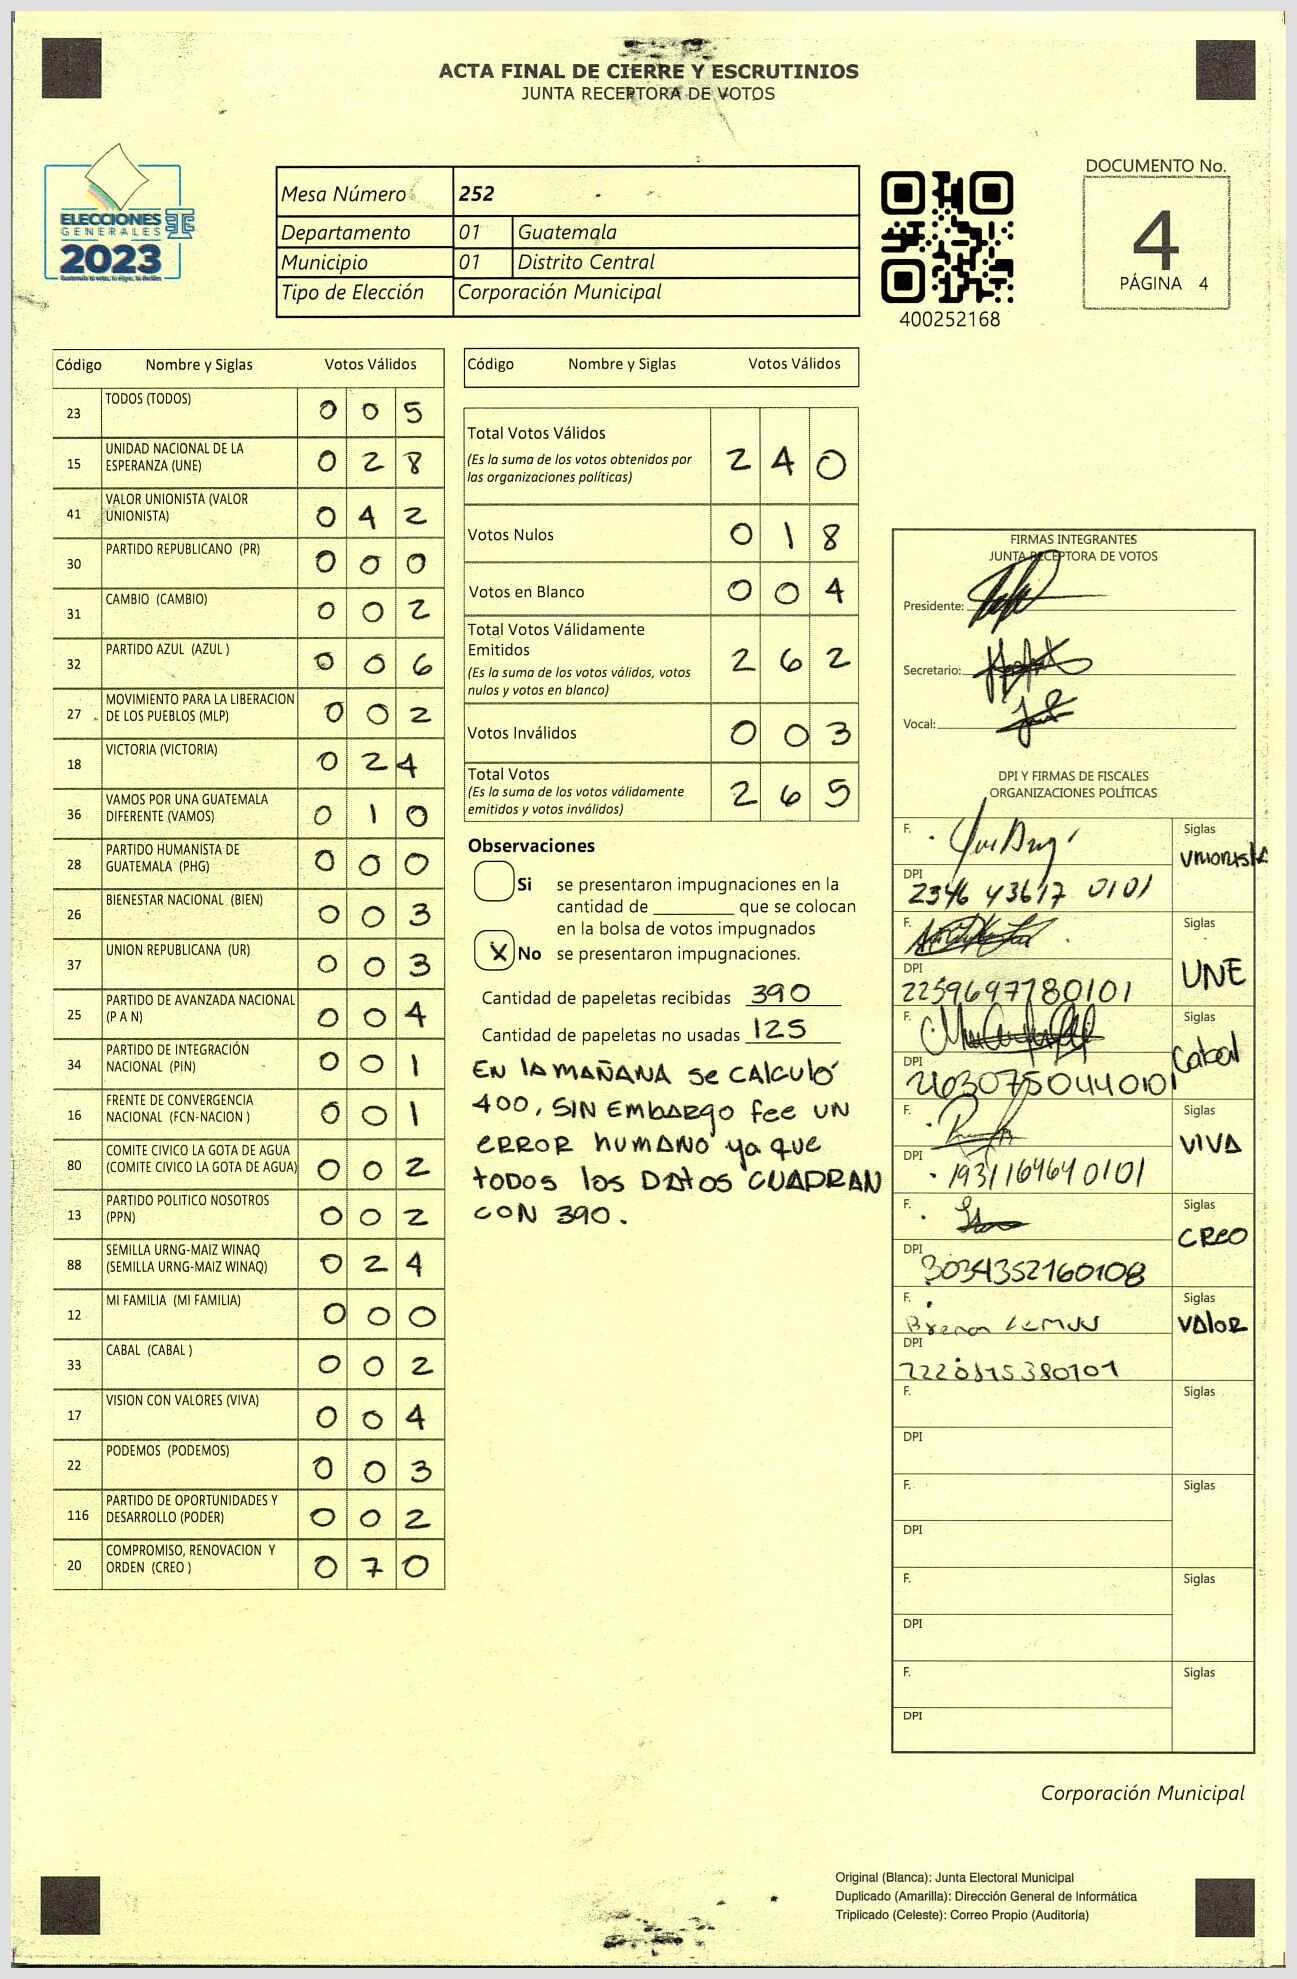 ACTA FINAL DE CIERRE Y ESCRUTINIOS
JUNTA RECEPTORA DE VOTOS
ELECCIONES
GENERALES
2023
Mesa Número 252
Departamento 01 Guatemala
Municipio 01 Distrito Central
Tipo de Elección Corporación Municipal
400252168
DOCUMENTO No.
4
PÁGINA 4
Código Nombre y Siglas Votos Válidos
23 TODOS (TODOS) 0 0 5
15 UNIDAD NACIONAL DE LA ESPERANZA (UNE) 0 2 8
41 VALOR UNIONISTA (VALOR UNIONISTA) 0 4 2
30 PARTIDO REPUBLICANO (PR) 0 0 0
31 CAMBIO (CAMBIO) 0 0 2
32 PARTIDO AZUL (AZUL ) 0 0 6
27 MOVIMIENTO PARA LA LIBERACION DE LOS PUEBLOS (MLP) 0 0 2
18 VICTORIA (VICTORIA) 0 2 4
36 VAMOS POR UNA GUATEMALA DIFERENTE (VAMOS) 0 1 0
28 PARTIDO HUMANISTA DE GUATEMALA (PHG) 0 0 0
26 BIENESTAR NACIONAL (BIEN) 0 0 3
37 UNION REPUBLICANA (UR) 0 0 3
25 PARTIDO DE AVANZADA NACIONAL (P A N) 0 0 4
34 PARTIDO DE INTEGRACIÓN NACIONAL (PIN) 0 0 1
16 FRENTE DE CONVERGENCIA NACIONAL (FCN-NACION ) 0 0 1
80 COMITE CIVICO LA GOTA DE AGUA (COMITE CIVICO LA GOTA DE AGUA) 0 0 2
13 PARTIDO POLITICO NOSOTROS (PPN) 0 0 2
88 SEMILLA URNG-MAIZ WINAQ (SEMILLA URNG-MAIZ WINAQ) 0 2 4
12 MI FAMILIA (MI FAMILIA) 0 0 0
33 CABAL (CABAL ) 0 0 2
17 VISION CON VALORES (VIVA) 0 0 4
22 PODEMOS (PODEMOS) 0 0 3
116 PARTIDO DE OPORTUNIDADES Y DESARROLLO (PODER) 0 0 2
20 COMPROMISO, RENOVACION Y ORDEN (CREO ) 0 7 0
Código Nombre y Siglas Votos Válidos
Total Votos Válidos 2 4 0
(Es la suma de los votos obtenidos por
las organizaciones políticas)
Votos Nulos 0 1 8
Votos en Blanco 0 0 4
Total Votos Válidamente
Emitidos 2 6 2
(Es la suma de los votos válidos, votos
nulos y votos en blanco)
Votos Inválidos 0 0 3
Total Votos 2 6 5
(Es la suma de los votos válidamente
emitidos y votos inválidos)
Observaciones
Si se presentaron impugnaciones en la
cantidad de ________ que se colocan
en la bolsa de votos impugnados
X No se presentaron impugnaciones.
Cantidad de papeletas recibidas 390
Cantidad de papeletas no usadas 125
EN lA MAÑANA se CALCULÓ
400, SIN EMbARgo fee UN
ERROR hUMANO ya que
todos los DAtos CUADRAN
CON 390.
FIRMAS INTEGRANTES
JUNTA RECEPTORA DE VOTOS
Presidente:
Secretario:
Vocal:
DPI Y FIRMAS DE FISCALES
ORGANIZACIONES POLÍTICAS
F. Siglas
Unionista
DPI
2346 43617 0101
F. Siglas
UNE
DPI
2259697780101
F. Siglas
Cabal
DPI
2630750440101
F. Siglas
VIVA
DPI
1931169640101
F. Siglas
CREO
DPI
3034352160108
F. Siglas
VAloR
DPI
F. Siglas
DPI
F. Siglas
DPI
F. Siglas
DPI
F. Siglas
DPI
Corporación Municipal
Original (Blanca): Junta Electoral Municipal
Duplicado (Amarilla): Dirección General de Informática
Triplicado (Celeste): Correo Propio (Auditoría)